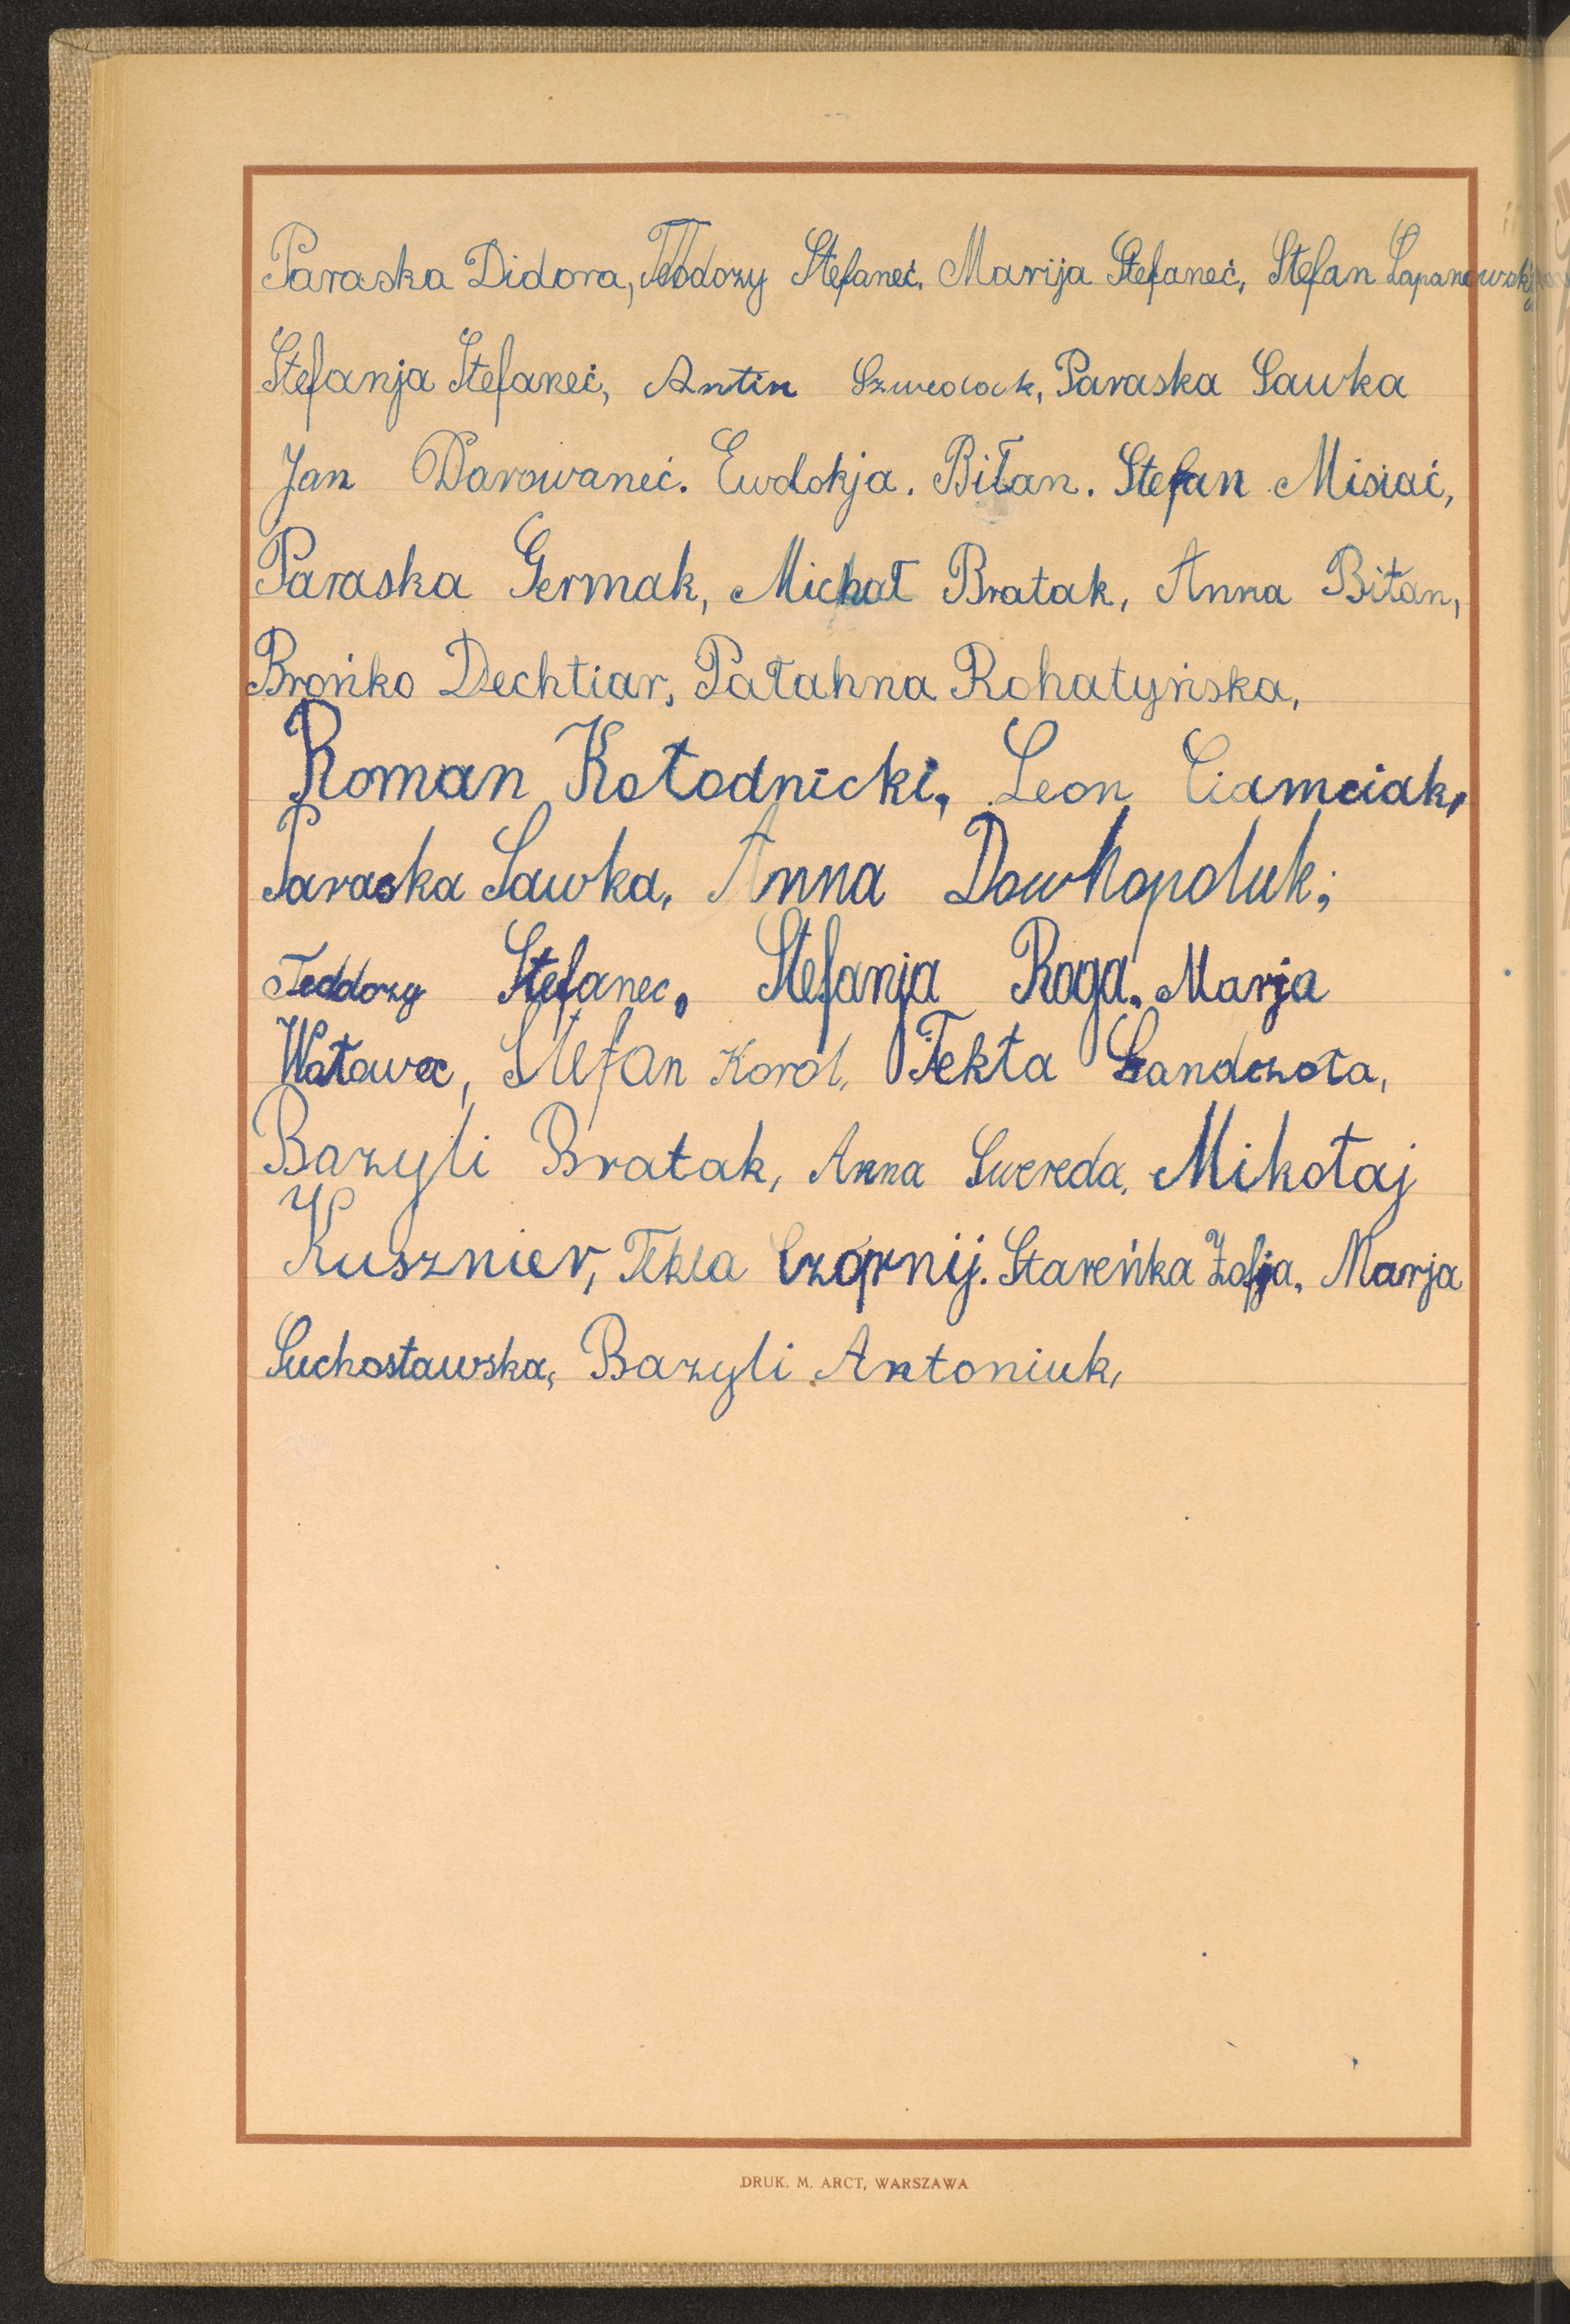 Paraska Didora, Teodozy Stefaneć, Marija Stefaneć, Stefan Łapanowski,
Stefanja Stefaneć, Antin Szwedock, Paraska Sawka
Jan Darowaneć. Ewdokja. Biłan. Stefan Misiać,
Paraska Germak, Michał Bratak, Anna Biłan,
Brońko Dechtiar, Pałahna Rohatyńska,
Roman Kołodnicki, Leon Ciamciak,
Paraska Sawka, Anna Dowhopoluk;
Teodozy Stefanec, Stefanja Roga, Marja
Watawec, Stefan Korol, Tekła Landzoła,
Bazyli Bratak, Anna Swereda, Mikołaj
Kusznier, Tekla Czornij. Stareńka Zofja, Marja
Suchosławska, Bazyli Antoniuk,
DRUK. M. ARCT, WARSZAWA